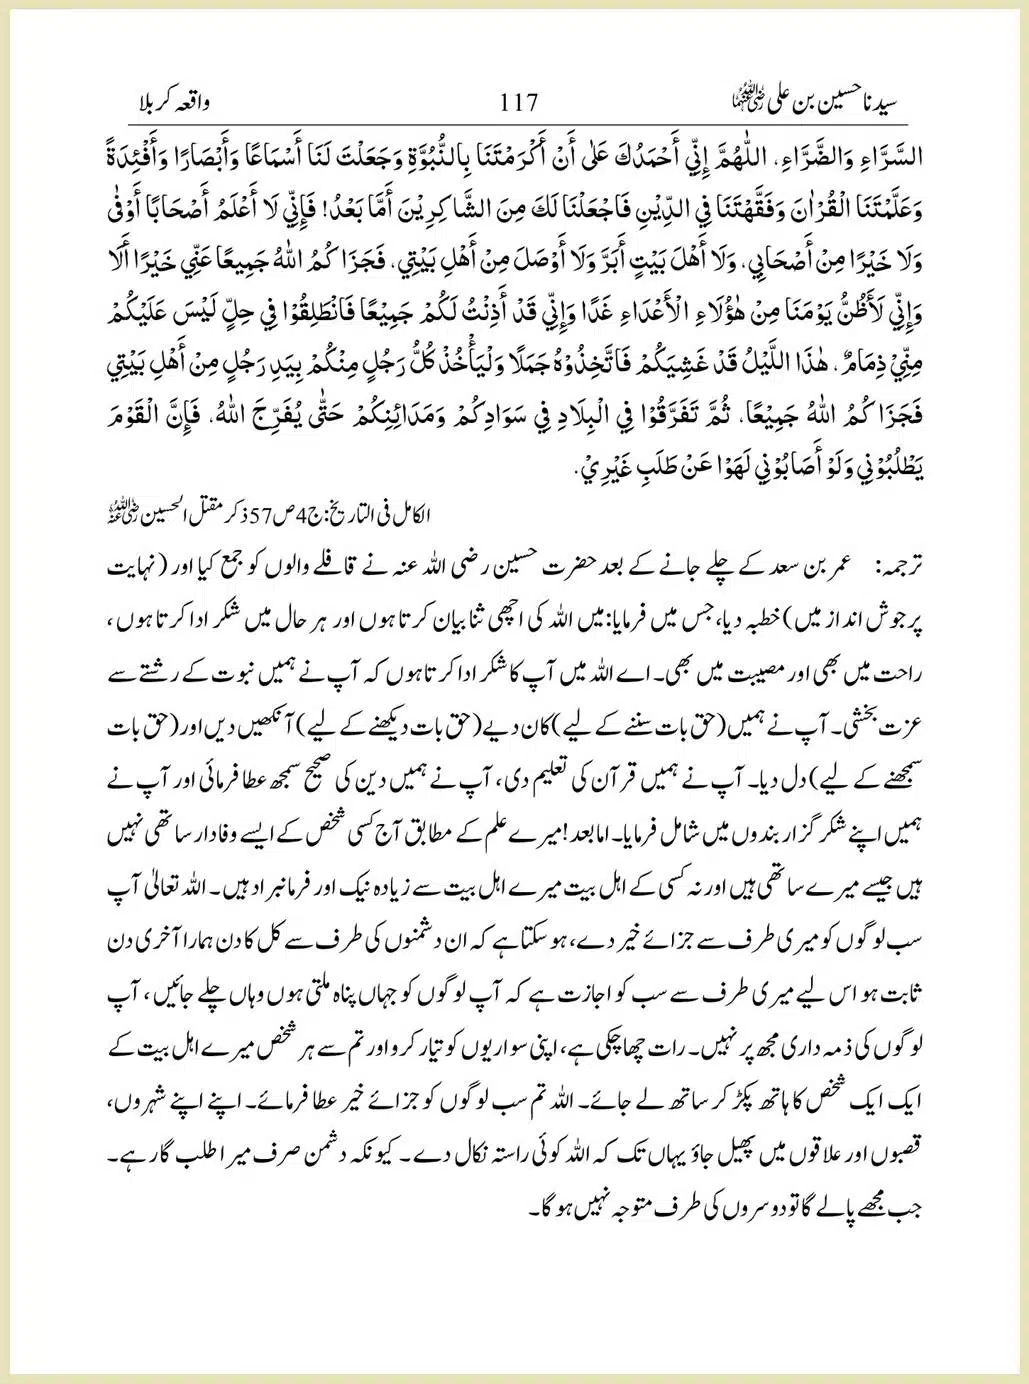 سیدنا حسین بن علی رضی اللہ عنہما 117 واقعہ کربلا
السَّرَّاءِ وَالضَّرَّاءِ، اللّٰهُمَّ إِنِّي أَحْمَدُكَ عَلٰى أَنْ أَكْرَمْتَنَا بِالنُّبُوَّةِ وَجَعَلْتَ لَنَا أَسْمَاعًا وَأَبْصَارًا وَأَفْئِدَةً
وَعَلَّمْتَنَا الْقُرْاٰنَ وَفَقَّهْتَنَا فِي الدِّيْنِ فَاجْعَلْنَا لَكَ مِنَ الشَّاكِرِيْنَ أَمَّا بَعْدُ! فَإِنِّي لَا أَعْلَمُ أَصْحَابًا أَوْفٰى
وَلَا خَيْرًا مِنْ أَصْحَابِي، وَلَا أَهْلَ بَيْتٍ أَبَرَّ وَلَا أَوْصَلَ مِنْ أَهْلِ بَيْتِي، فَجَزَاكُمُ اللهُ جَمِيعًا عَنِّي خَيْرًا أَلَا
وَإِنِّي لَأَظُنُّ يَوْمَنَا مِنْ هٰؤُلَاءِ الْأَعْدَاءِ غَدًا وَإِنِّي قَدْ أَذِنْتُ لَكُمْ جَمِيعًا فَانْطَلِقُوْا فِي حِلٍّ لَيْسَ عَلَيْكُمْ
مِنِّيْ ذِمَامٌ، هٰذَا اللَّيْلُ قَدْ غَشِيَكُمْ فَاتَّخِذُوْهُ جَمَلًا وَلْيَأْخُذْ كُلُّ رَجُلٍ مِنْكُمْ بِيَدِ رَجُلٍ مِنْ أَهْلِ بَيْتِي
فَجَزَاكُمُ اللهُ جَمِيْعًا، ثُمَّ تَفَرَّقُوْا فِي الْبِلَادِ فِي سَوَادِكُمْ وَمَدَائِنِكُمْ حَتّٰى يُفَرِّجَ اللهُ، فَإِنَّ الْقَوْمَ
يَطْلُبُوْنِي وَلَوْ أَصَابُوْنِي لَهَوْا عَنْ طَلَبِ غَيْرِيْ.
الکامل فی التاریخ: ج4ص57 ذکر مقتل الحسین رضی اللہ عنہ
ترجمہ: عمر بن سعد کے چلے جانے کے بعد حضرت حسین رضی اللہ عنہ نے قافلے والوں کو جمع کیا اور (نہایت
پرجوش انداز میں) خطبہ دیا، جس میں فرمایا: میں اللہ کی اچھی ثنا بیان کرتا ہوں اور ہر حال میں شکر ادا کرتا ہوں،
راحت میں بھی اور مصیبت میں بھی۔ اے اللہ میں آپ کا شکر ادا کرتا ہوں کہ آپ نے ہمیں نبوت کے رشتے سے
عزت بخشی۔ آپ نے ہمیں (حق بات سننے کے لیے) کان دیے (حق بات دیکھنے کے لیے) آنکھیں دیں اور (حق بات
سمجھنے کے لیے) دل دیا۔ آپ نے ہمیں قرآن کی تعلیم دی، آپ نے ہمیں دین کی صحیح سمجھ عطا فرمائی اور آپ نے
ہمیں اپنے شکر گزار بندوں میں شامل فرمایا۔ اما بعد! میرے علم کے مطابق آج کسی شخص کے ایسے وفادار ساتھی نہیں
ہیں جیسے میرے ساتھی ہیں اور نہ کسی کے اہل بیت میرے اہل بیت سے زیادہ نیک اور فرمانبراد ہیں۔ اللہ تعالیٰ آپ
سب لوگوں کو میری طرف سے جزائے خیر دے، ہو سکتا ہے کہ ان دشمنوں کی طرف سے کل کا دن ہمارا آخری دن
ثابت ہو اس لیے میری طرف سے سب کو اجازت ہے کہ آپ لوگوں کو جہاں پناہ ملتی ہوں وہاں چلے جائیں، آپ
لوگوں کی ذمہ داری مجھ پر نہیں۔ رات چھا چکی ہے، اپنی سواریوں کو تیار کرو اور تم سے ہر شخص میرے اہل بیت کے
ایک ایک شخص کا ہاتھ پکڑ کر ساتھ لے جائے۔ اللہ تم سب لوگوں کو جزائے خیر عطا فرمائے۔ اپنے اپنے شہروں،
قصبوں اور علاقوں میں پھیل جاؤ یہاں تک کہ اللہ کوئی راستہ نکال دے۔ کیونکہ دشمن صرف میرا طلب گار ہے۔
جب مجھے پالے گا تو دوسروں کی طرف متوجہ نہیں ہو گا۔